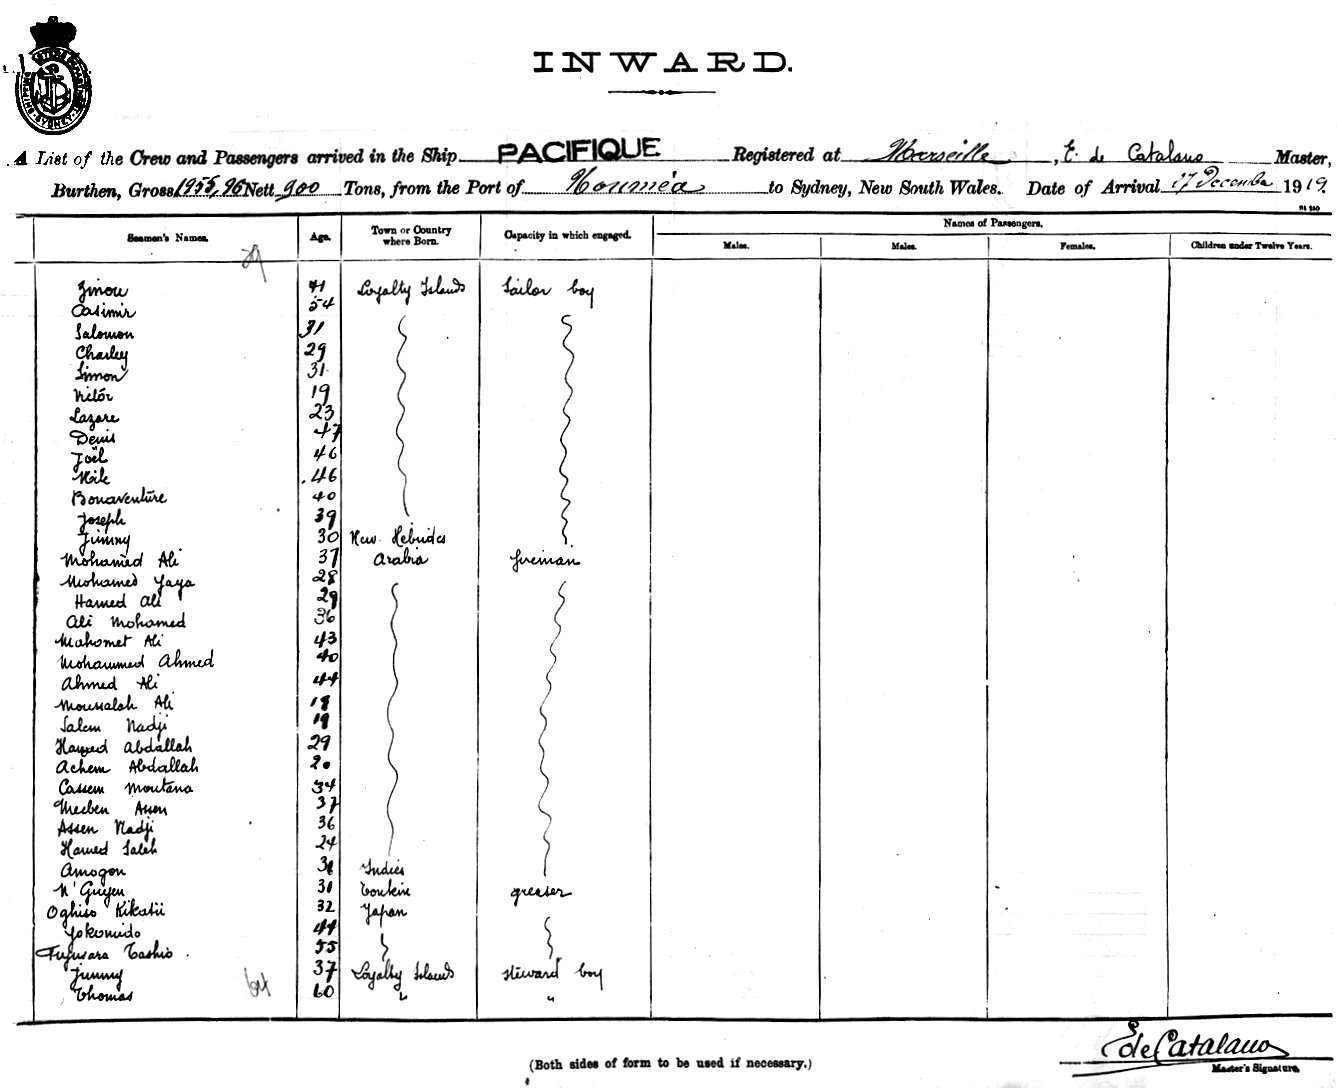 INWARD.
A List of the Crew and Passengers arrived in the Ship PACIFIQUE Registered at Marseille, E. de Catalano Master,
Burthen, Gross 1955,96 Nett 900 Tons, from the Port of Nouméa to Sydney, New South Wales. Date of Arrival 17 December 1919.
Names of Passengers.
Seamen's Names. Age. Town or Country where Born. Capacity in which engaged. Males. Males. Females. Children under Twelve Years.
Zinou 41 Loyalty Islands Sailor boy
Casimir 54
Salomon 31
Charley 29
Simon 31
Victor 19
Lazare 23
Denis 47
Joël 46
46
Bonaventure 40
Joseph 39
Jimmy 30 New Hebrides
Mohamed Ali 37 Arabia fireman
Mohamed Yaya 28
Hamed Ali 29
Ali Mohamed 36
Mahomet Ali 43
Mohammed Ahmed 40
Ahmed Ali 44
Moussalah Ali 18
Salem Nadji 19
Hamed Abdallah 29
Achem Abdallah 20
Cassem Moutana 34
Meeben Assen 37
Assen Nadji 36
Hamed Saleh 24
Amogon Indies
N'Guyen 31 Tonkin greaser
Oghiso Kikatii 32 Japan
Yokomido 44
Fujiwara Tashio 55
Jimmy 37 Loyalty Islands Steward boy
Thomas 60 " "
E de Catalano
Master's Signature.
(Both sides of form to be used if necessary.)